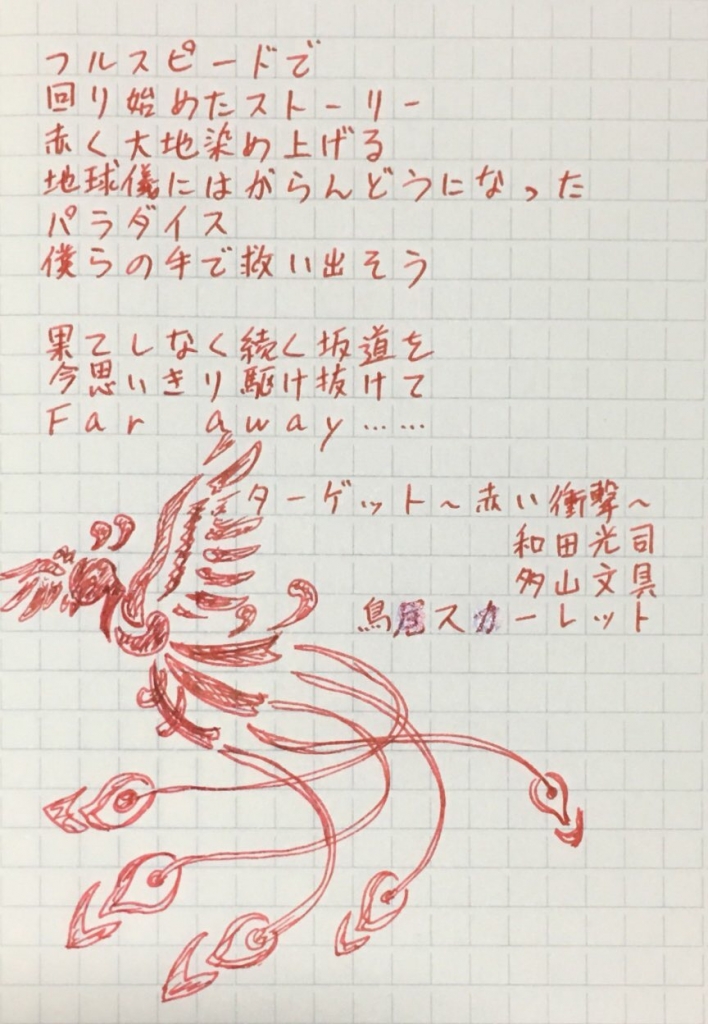 フルスピードで
回り始めたストーリー
赤く大地染め上げる
地球儀にはがらんどうになった
パラダイス
僕らの手で救い出そう
果てしなく続く坂道を
今思いきり駆け抜けて
Far away……
ターゲット〜赤い衝撃〜
和田光司
多山文具
鳥尾スカーレット